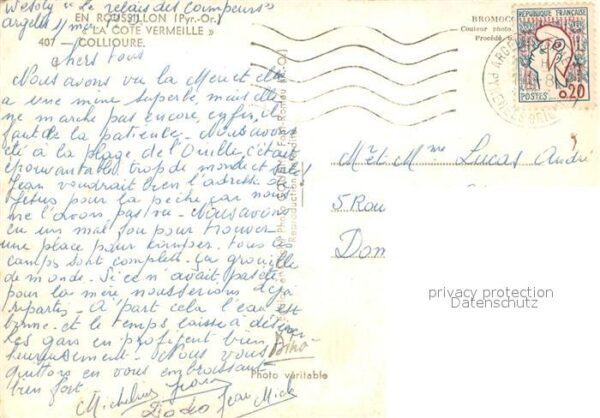 Wesoly "Le relais des Campeurs"
Argelès s/ mer
EN ROUSSILLON (Pyr.-Or.)
" LA COTE VERMEILLE "
407 - COLLIOURE.
Chers tous
Nous avons vu la Mer et elle
a une mine superbe, mais elle
ne marche pas encore, enfin, de
faut de la patience - Nous avons
été à la plage de l'Ouille c'était
épouvantable, trop de monde et sale
Jean voudrait bien l'adresse de
pour la pêche car nous
ne l'avons pas vu - Nous avons
eu un mal fou pour trouver
une place pour kamper. tous les
camps sont complets. ça grouille
de monde. Si ce n'avait pas été
pour la mère nous serions déjà
repartis - A part cela l'eau est
bonne - et le temps laisse à désirer
les gars en profitent bien
heureusement - Nous vous
quittons en vous embrassant
bien fort
Micheline Jean
Dodo Jean Mick
Photo véritable
Reproduction interdite
BROMOCO
Couleur photo
Procédé
POSTES
0,20
Mr et Mme Lucas André
5 Rou
Dom
privacy protection
Datenschutz